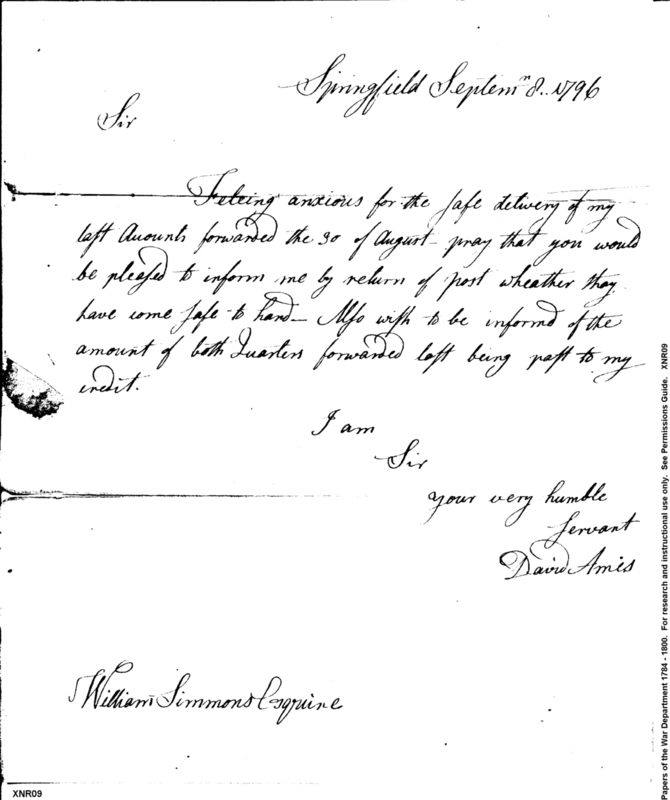 Springfield Septemr 8.. 1796
Sir
Feleing anxious for the safe delivery of my
last Acounts forwarded the 30 of August - pray that you would
be pleased to inform me by return of post wheather thay
have come safe to hand - Also wish to be informd of the
amount of both Quarters forwarded last being past to my
credit.
I am
Sir
your very humble
servant
David Ames
William Simmons Esquire
XNR09
Papers of the War Department 1784 - 1800. For research and instructional use only. See Permissions Guide. XNR09